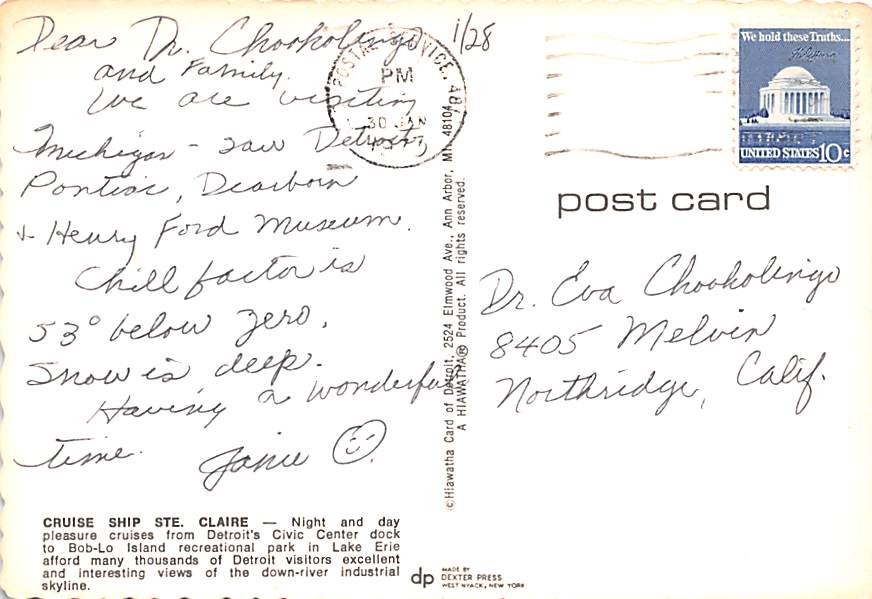 1/28
Dear Dr. Chookolingo
and Family.
We are visiting
Michigan - saw Detroit,
Pontiac, Dearborn
+ Henry Ford Museum.
Chill factor is
53° below zero.
Snow is deep.
Having a wonderful
time.
Janie
CRUISE SHIP STE. CLAIRE — Night and day
pleasure cruises from Detroit's Civic Center dock
to Bob-Lo Island recreational park in Lake Erie
afford many thousands of Detroit visitors excellent
and interesting views of the down-river industrial
skyline.
POSTAL SERVICE,
PM
30 JAN
©Hiawatha Card of Detroit, 2524 Elmwood Ave., Ann Arbor, MI 48104
A HIAWATHA® Product. All rights reserved.
dp
MADE BY
DEXTER PRESS
WEST NYACK, NEW YORK
We hold these Truths...
UNITED STATES 10c
post card
Dr. Eva Chookolingo
8405 Melvin
Northridge, Calif.